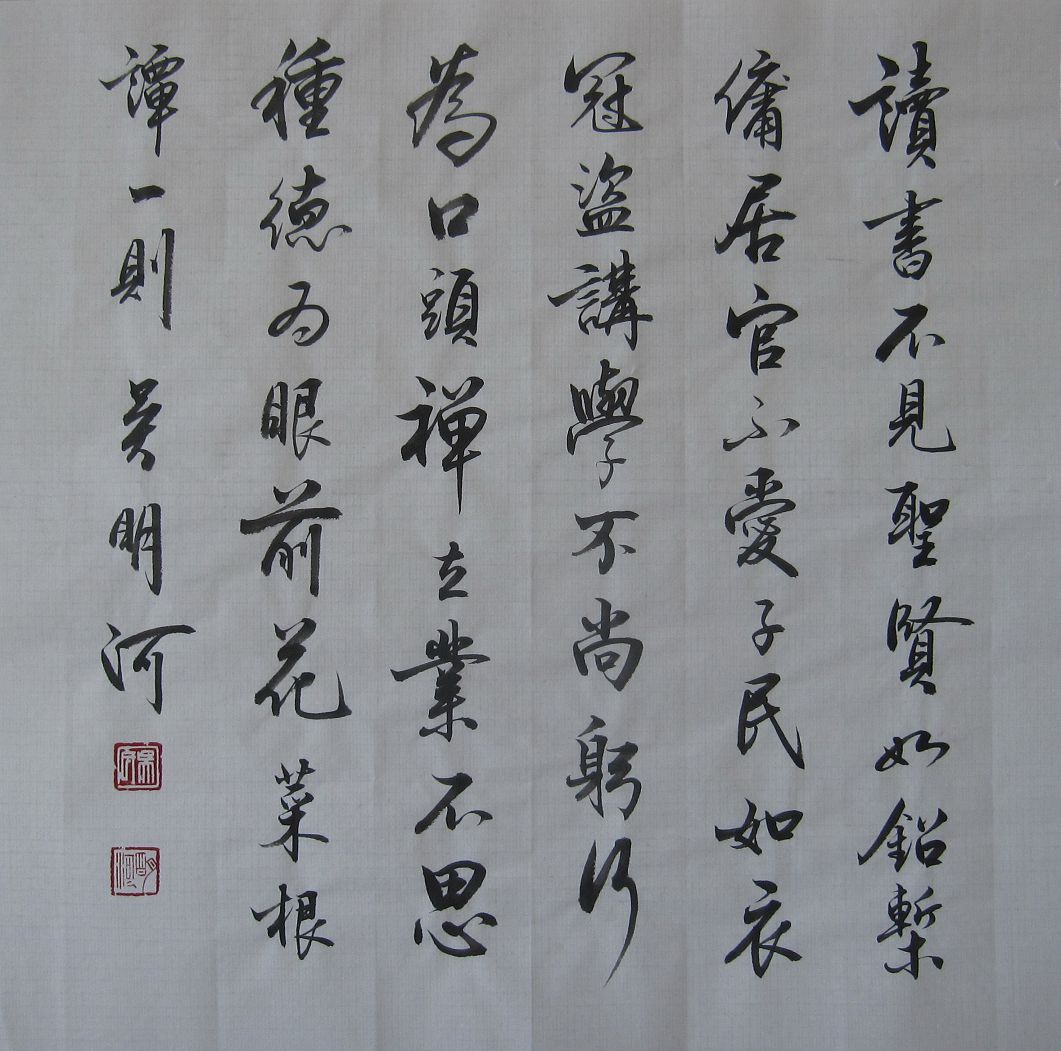 讀書不見聖賢如鉛槧
傭居官不愛子民如衣
冠盜講學不尚躬行
為口頭禪立業不思
種德為眼前花菜根
譚一則吴明河